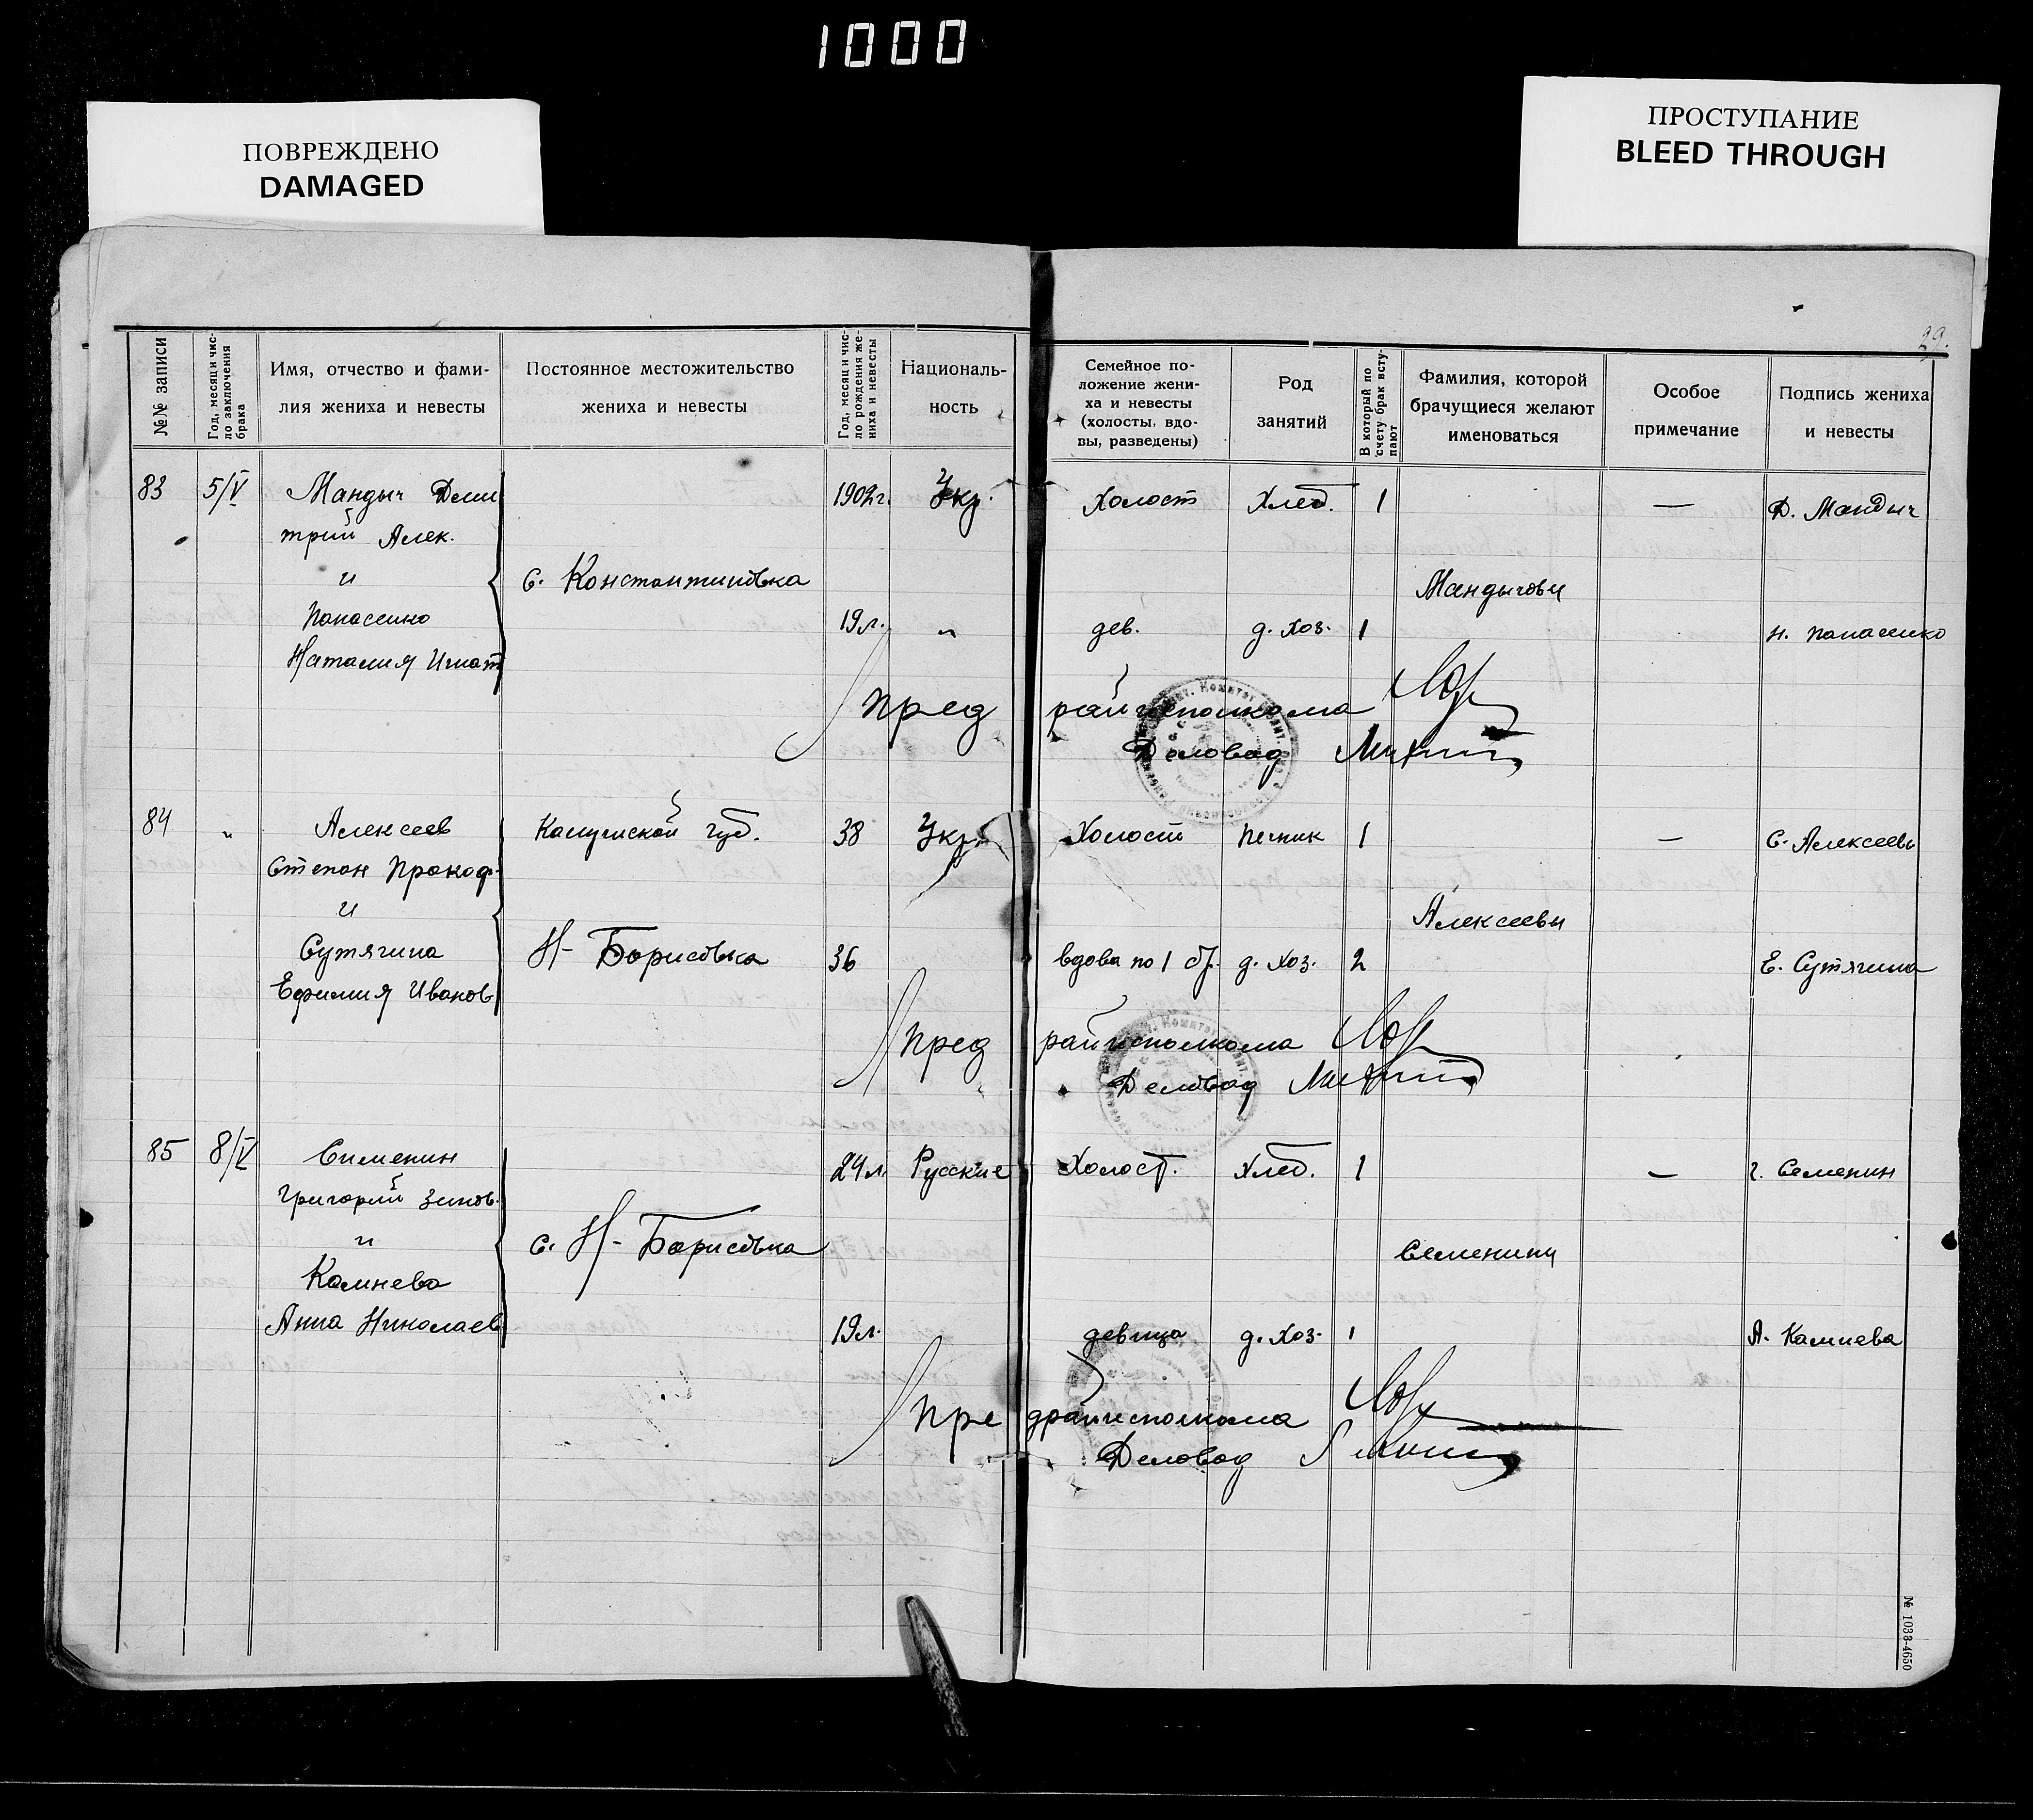 1000
ПОВРЕЖДЕНО
DAMAGED
ПРОСТУПАНИЕ
BLEED THROUGH
29.
№№ записи
Год, месяц и чис-
ло заключения
брака
Имя, отчество и фами-
лия жениха и невесты
Постоянное местожительство
жениха и невесты
Год, месяц и чис-
ло рождения же-
ниха и невесты
Националь-
ность
Семейное по-
ложение жени-
ха и невесты
(холосты, вдо-
вы, разведены)
Род
занятий
В который по
счету брак всту-
пают
Фамилия, которой
брачущиеся желают
именоваться
Особое
примечание
Подпись жениха
и невесты
83 5/V Мандыч Дми 1902г. Укр. Холост Хлеб. 1 — Д. Мандыч
трий Алек.
и с. Константиновка Мандычовы
Панасенко 19 л. „ дев. д. хоз. 1 Н. Панасенко
Наталия Игнат
Пред райисполкома
Деловод
84 „ Алексеев Калужской губ. 38 Укр. Холост Печник 1 — С. Алексеевъ
Степан Прокоф.
и Алексеевы
Сутягина Н-Борисовка 36 вдова по 1 бр. д. хоз. 2 Е. Сутягина
Ефимия Иванов
Пред райисполкома
Деловод
85 8/V Сименин 24 л. Русские Холост. Хлеб. 1 — Г. Семенин
Григорий Зинов.
и с. Н-Борисовка Семенины
Камнева
Анна Николаев 19 л. девица д. хоз. 1 А. Камнева
Предрайисполкома
Деловод
№ 1038-4650